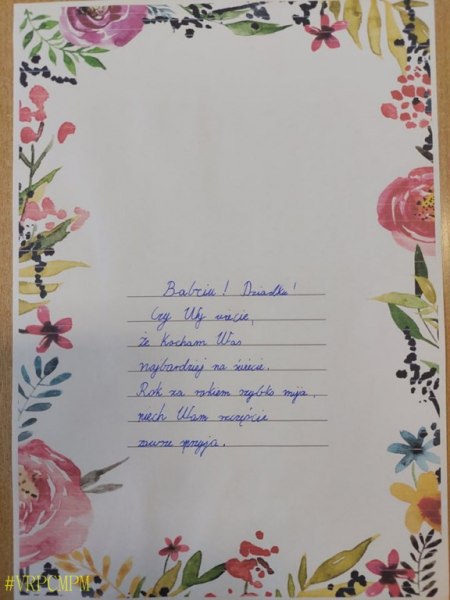 Babciu! Dziadku!
Czy Wy wiecie,
że Kocham Was
najbardziej na świecie.
Rok za rokiem szybko mija,
niech Wam szczęście
zawsze sprzyja.
#VRPCMPM